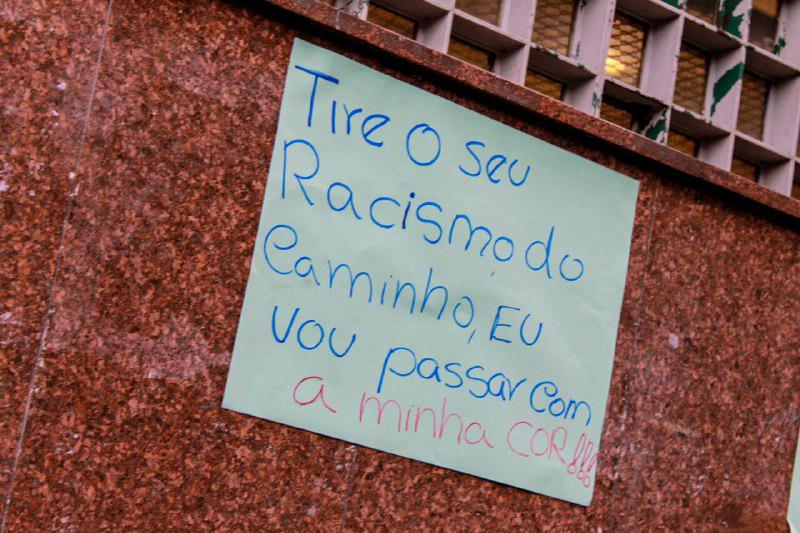 Tire o seu
Racismo, do
Caminho, EU
vou passar com
a minha COR!!!